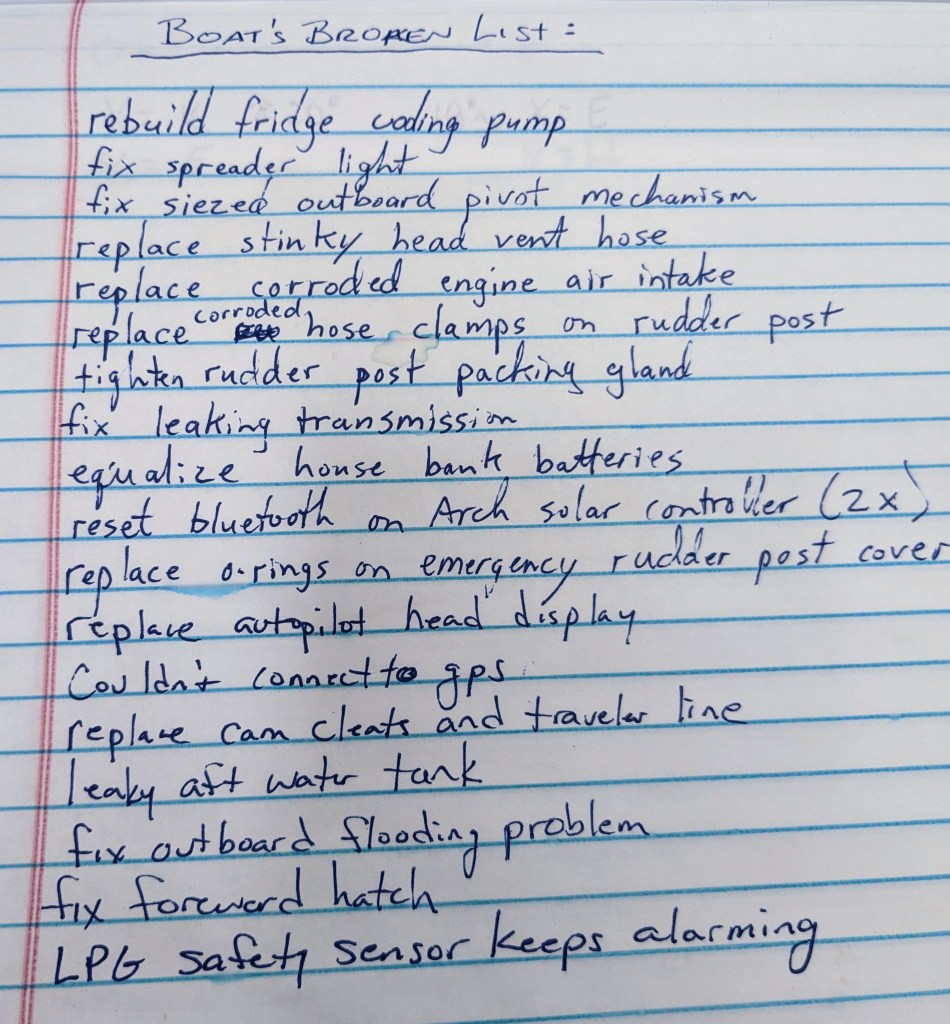 BOAT'S BROKEN LIST:
rebuild fridge cooling pump
fix spreader light
fix siezed outboard pivot mechanism
replace stinky head vent hose
replace corroded engine air intake
replace corroded hose clamps on rudder post
tighten rudder post packing gland
fix leaking transmission
equalize house bank batteries
reset bluetooth on Arch solar controller (2x)
replace o-rings on emergency rudder post cover
replace autopilot head display
Couldn't connect to gps
replace cam cleats and traveler line
leaky aft water tank
fix outboard flooding problem
fix foreword hatch
LPG safety sensor keeps alarming